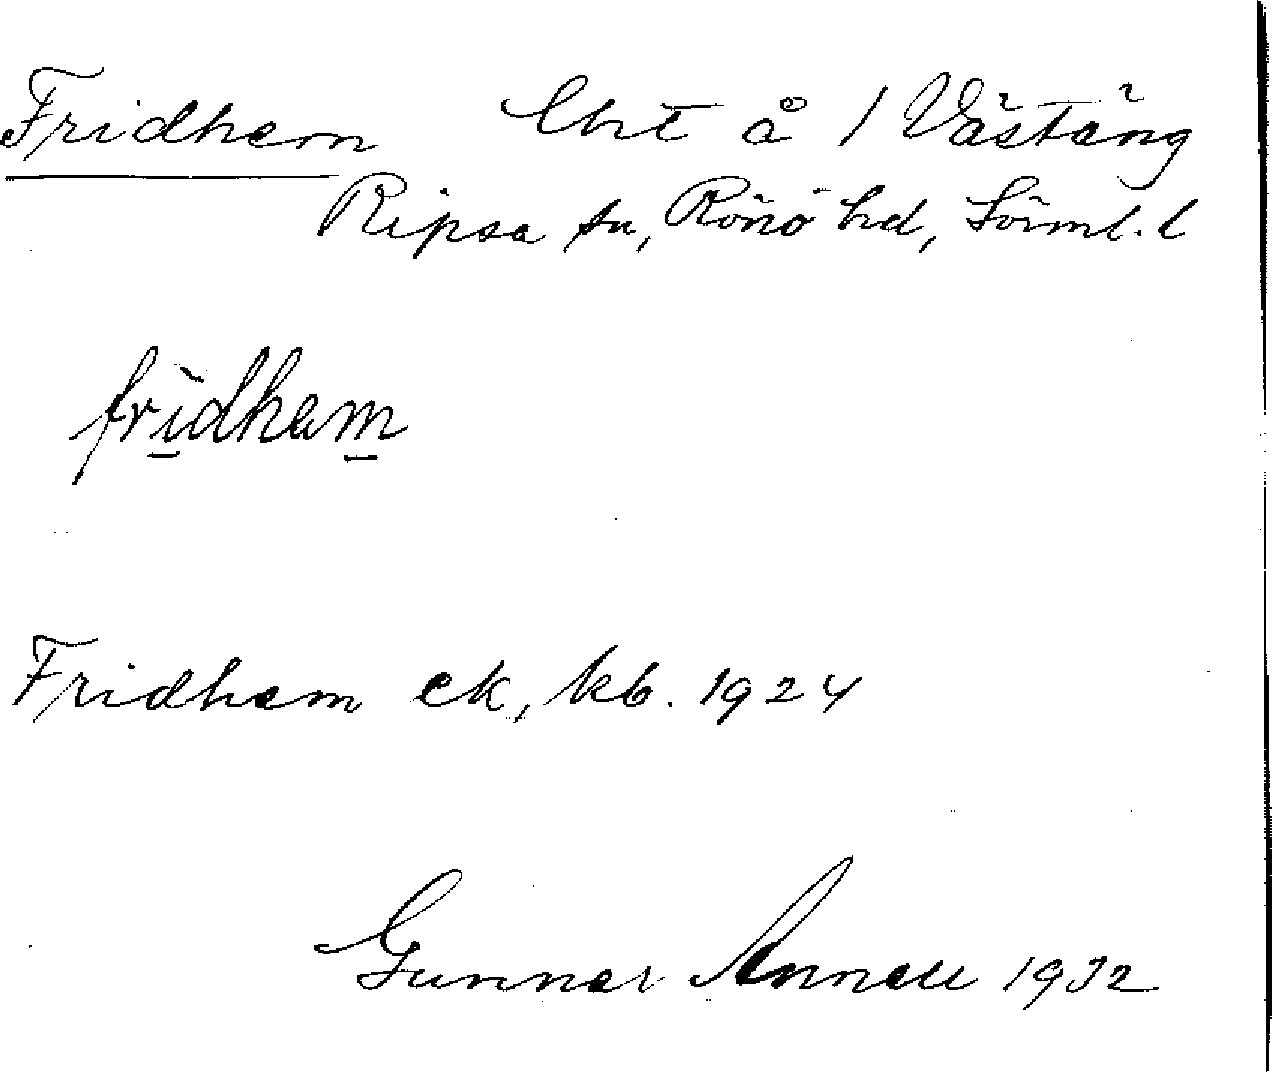 Fridhem lht å 1 Västäng
Ripsa sn, Rönö hd, Sörml. l
fridhem
Fridhem ek, kb. 1924
Gunnar Annell 1932